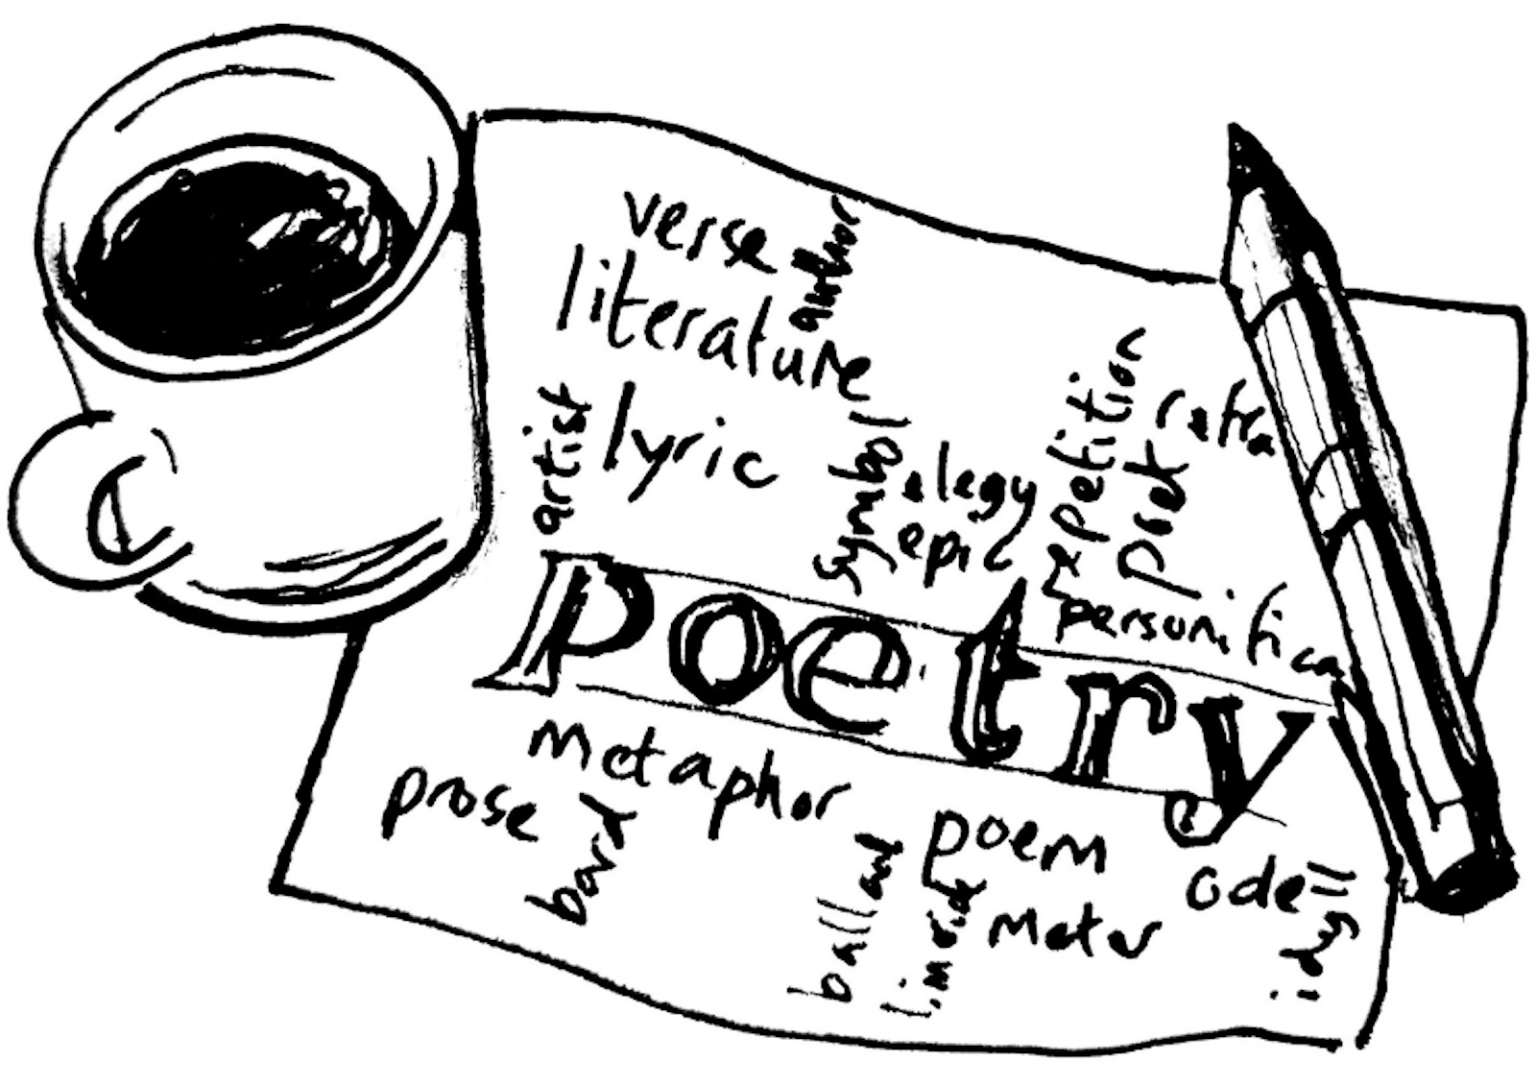 verse
author
literature
artist
lyric
symbol
elegy
epic
repetition
poet
refra
personifica
Poetry
metaphor
prose
bard
ballad
poem
limerick
Meter
ode
idyll